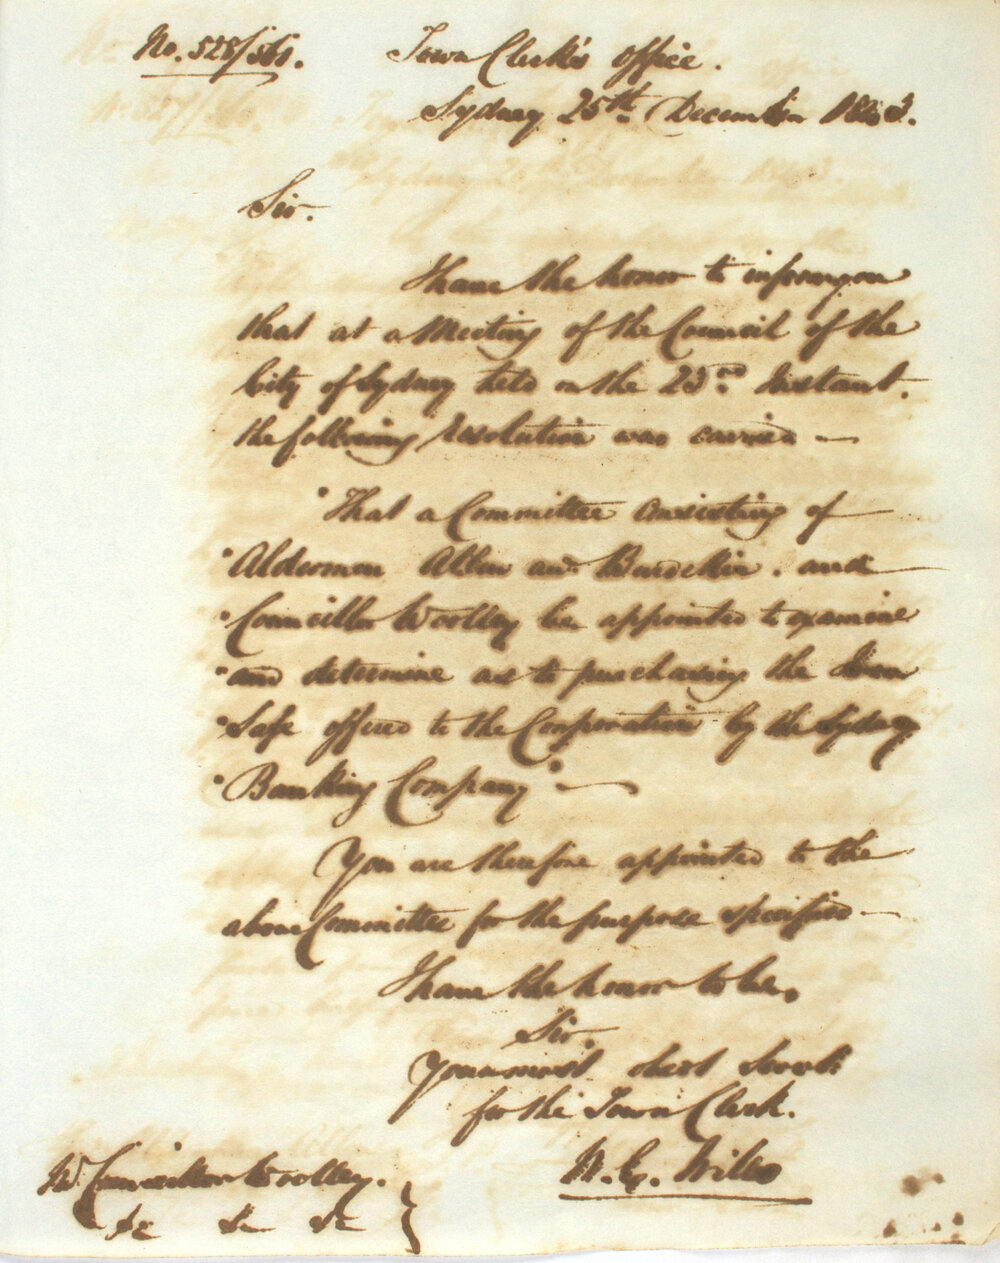 No. 528/561. Town Clerk's office.
Sydney 26th December 1843.
Sir.
I have the honor to inform you
that at a Meeting of the Council of the
City of Sydney held on the 23rd Instant.
the following Resolution was carried —
"That a Committee Consisting of
"Aldermen Allen and Burdekin. and
"Councillor Woolley be appointed to examine
"and determine as to purchasing the Iron
"Safe offered to the Corporation by the Sydney
"Banking Company" —
You are therefore appointed to the
above Committee for the purpose specified —
I have the honor to be,
Sir.
Your most obedt Servt.
for the Town Clerk.
Wiles
Mr Councillor Woolley. }
&c &c &c